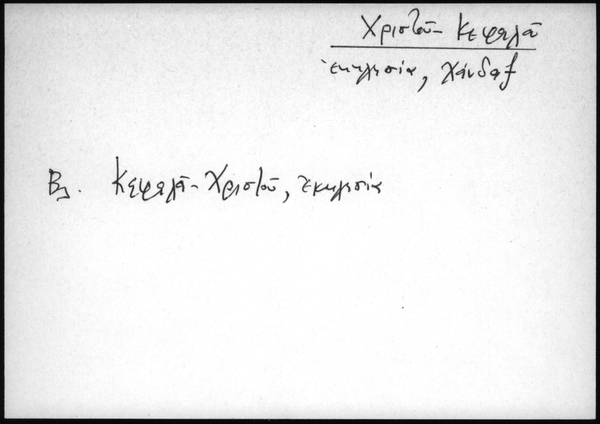 Χριστοῦ - Κεφαλᾶ
ἐκκλησία, Χάνδαξ
Βλ. Κεφαλᾶ - Χριστοῦ, ἐκκλησία